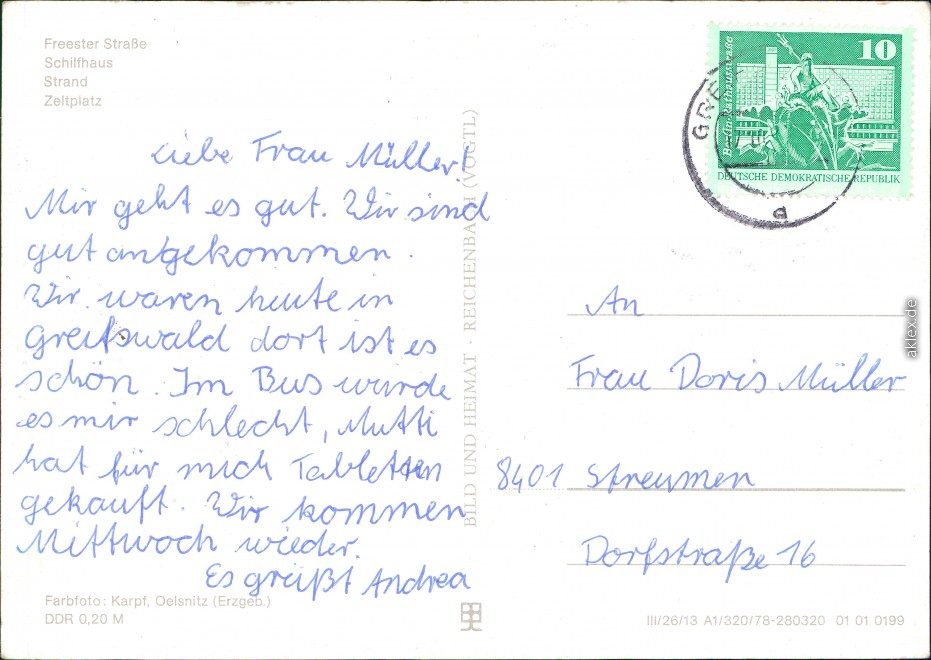 Freester Straße
Schilfhaus
Strand
Zeltplatz
Liebe Frau Müller!
Mir geht es gut. Wir sind
gut angekommen
Wir waren heute in
Greifswald dort ist es
schön. Im Bus wurde
es mir schlecht, Mutti
hat für mich Tabletten
gekauft. Wir kommen
Mittwoch wieder.
Es greißt Andrea
Farbfoto: Karpf, Oelsnitz (Erzgeb.)
DDR 0,20 M
BILD UND HEIMAT · REICHENBACH (VOGTL)
10
Berlin-Rathausstraße
DEUTSCHE DEMOKRATISCHE REPUBLIK
GRE
a
An
Frau Doris Müller
8401 Streumen
Dorfstraße 16
III/26/13 A1/320/78-280320 01 01 0199
aklex.de